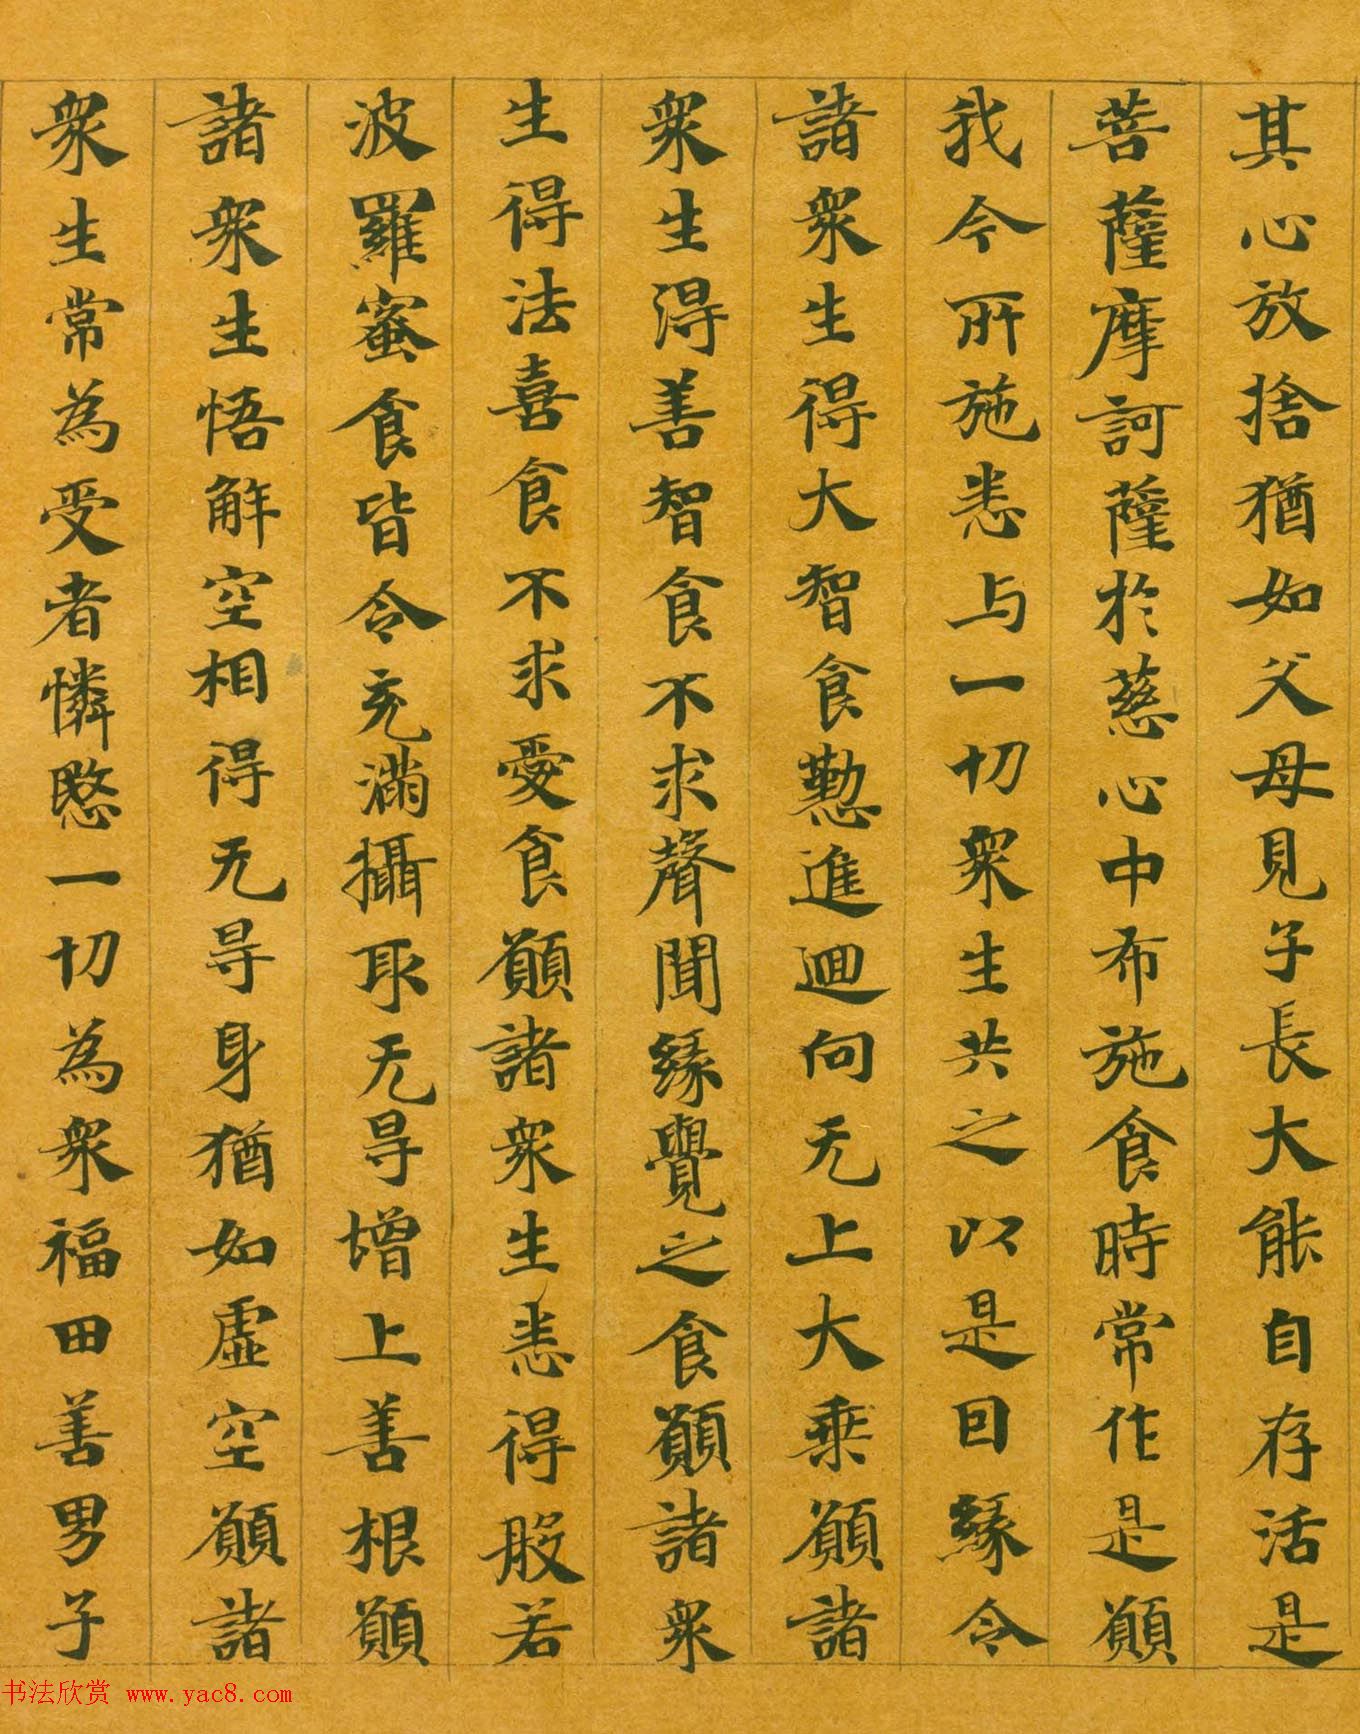 其心放捨猶如父母見子長大能自存活是
菩薩摩訶薩於慈心中布施食時常作是願
我今所施悉与一切衆生共之以是因緣令
諸衆生得大智食懃進迴向无上大乘願諸
衆生得善智食不求聲聞緣覺之食願諸衆
生得法喜食不求愛食願諸衆生悉得般若
波羅蜜食皆令充滿攝取无㝵增上善根願
諸衆生悟解空相得无㝵身猶如虛空願諸
衆生常為受者憐愍一切為衆福田善男子
书法欣赏 www.yac8.com